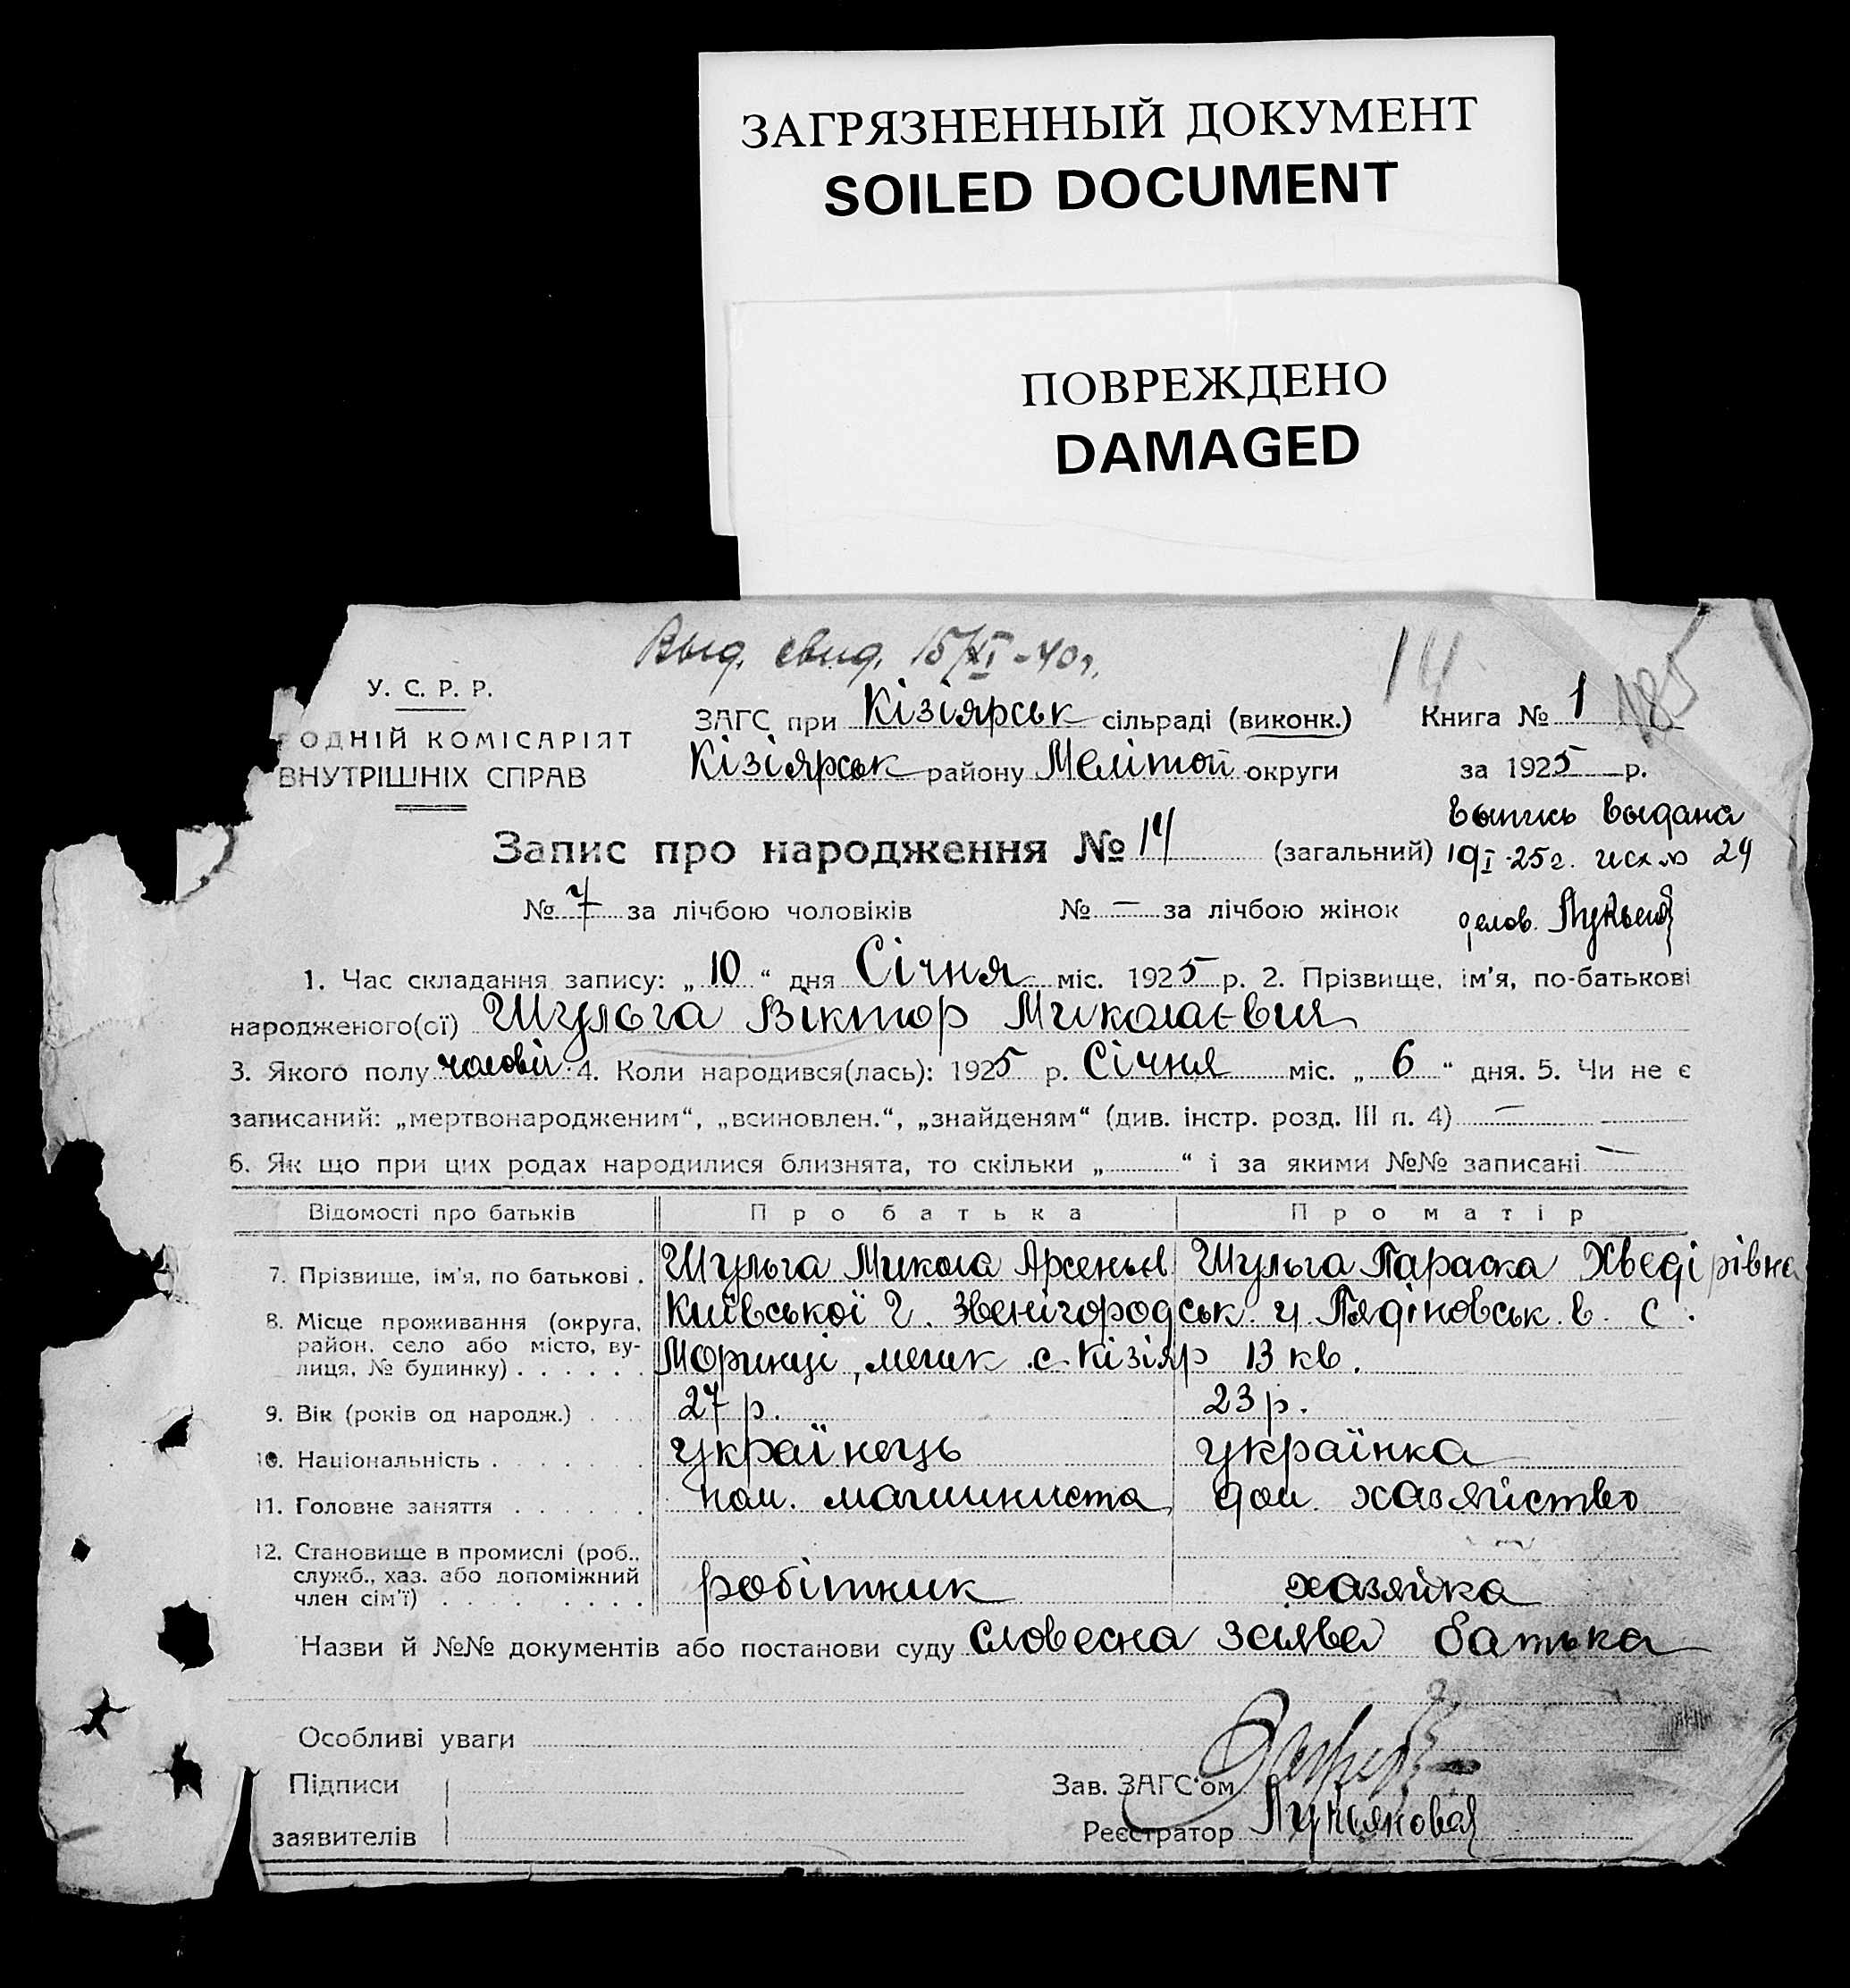 ЗАГРЯЗНЕННЫЙ ДОКУМЕНТ
SOILED DOCUMENT
ПОВРЕЖДЕНО
DAMAGED
Выд. свид. 15/XI-40г.
14
185
У. С. Р. Р.
РОДНІЙ КОМІСАРІЯТ
ВНУТРІШНІХ СПРАВ
ЗАГС при Кізіярськ сільраді (виконк.) Книга № 1
Кізіярськ району Меліտոп округи за 1925 р.
Запис про народження № 14 (загальний)
Выпись выдана
19/I-25г. исх № 24
№ 7 за лічбою чоловіків № — за лічбою жінок
делов.
1. Час складання запису: „ 10 “ дня Січня міс. 1925 р. 2. Прізвище, ім'я, по-батькові
народженого(ої) Шульга Віктор Миколаєвич
3. Якого полу чоловіч. 4. Коли народився(лась): 1925 р. Січня міс. „ 6 “ дня. 5. Чи не є
записаний: „мертвонародженим“, „всиновлен.“, „знайденям“ (див. інстр. розд. III п. 4) —
6. Як що при цих родах народилися близнята, то скільки „ “ і за якими №№ записані —
Відомості про батьків Про батька Про матір
7. Прізвище, ім'я, по батькові . Шульга Микола Арсеньєв Шульга Параска Хведірівна
8. Місце проживання (округа, район, село або місто, вулиця, № будинку) . . . . . . Київської г. Звенігородськ. у. Пядіновськ. в. с.
Моринці, мешк. с. Кізіяр 13 кв.
9. Вік (років од народж.) . . . 27 р. 23 р.
10. Національність . . . . . . . українець українка
11. Головне заняття . . . . . . пом. машиниста дом. хазяйство
12. Становище в промислі (роб., служб., хаз. або допоміжний член сім'ї) . . . . . . . . робітник хазяйка
Назви й №№ документів або постанови суду словесна заява батька
Особливі уваги
Підписи Зав. ЗАГС'ом
заявителів Реєстратор Лукьянова